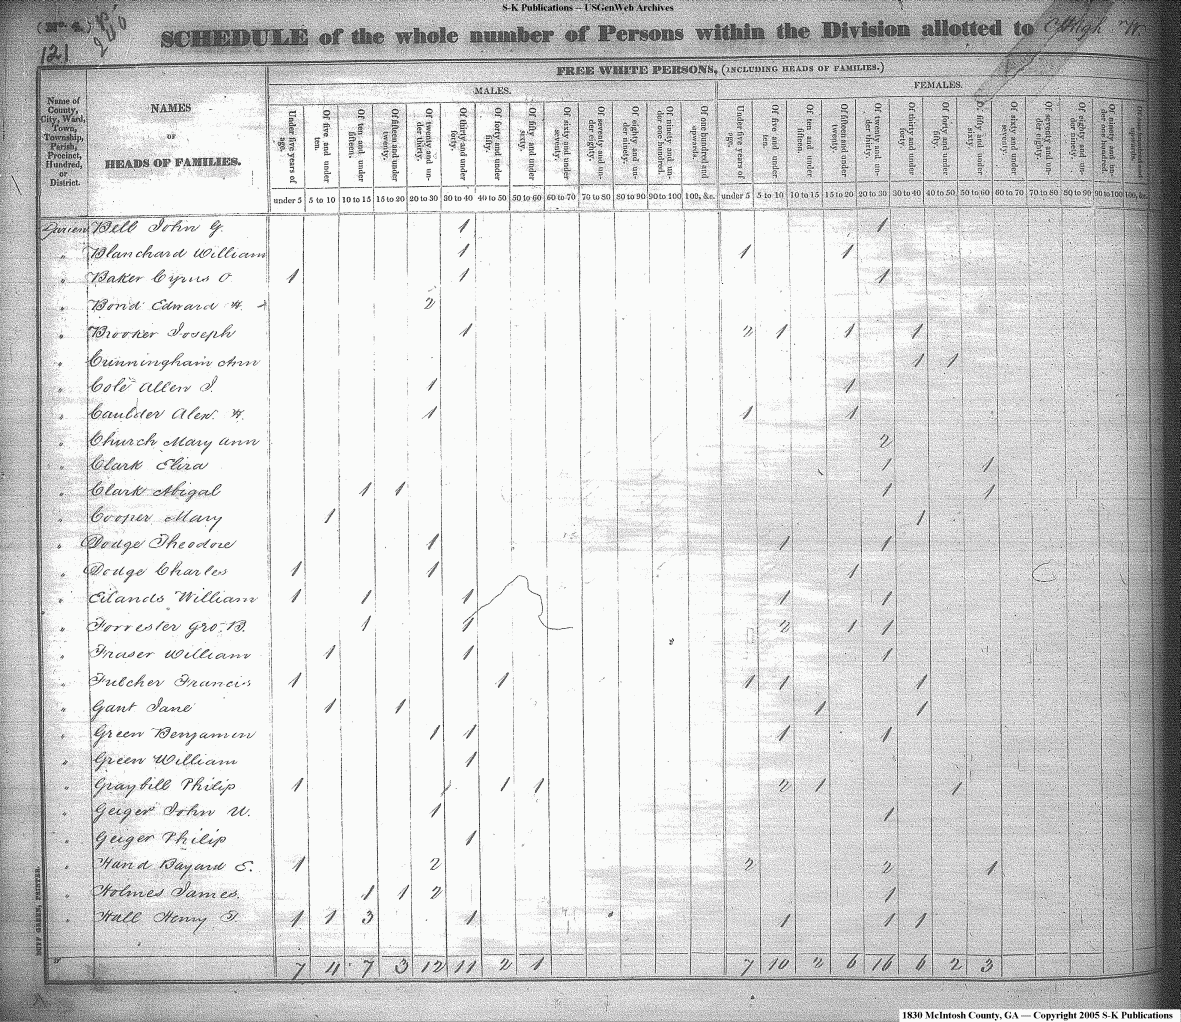 S-K Publications -- USGenWeb Archives
(No. 4.)
121
SCHEDULE of the whole number of Persons within the Division allotted to
FREE WHITE PERSONS, (INCLUDING HEADS OF FAMILIES.)
MALES. FEMALES.
Name of County, City, Ward, Town, Township, Parish, Precinct, Hundred, or District.
NAMES
OF
HEADS OF FAMILIES.
Under five years of age. Of five and under ten. Of ten and under fifteen. Of fifteen and under twenty. Of twenty and under thirty. Of thirty and under forty. Of forty and under fifty. Of fifty and under sixty. Of sixty and under seventy. Of seventy and under eighty. Of eighty and under ninety. Of ninety and under one hundred. Of one hundred and upwards. Under five years of age. Of five and under ten. Of ten and under fifteen. Of fifteen and under twenty. Of twenty and under thirty. Of thirty and under forty. Of forty and under fifty. Of fifty and under sixty. Of sixty and under seventy. Of seventy and under eighty. Of eighty and under ninety. Of ninety and under one hundred.
under 5 5 to 10 10 to 15 15 to 20 20 to 30 30 to 40 40 to 50 50 to 60 60 to 70 70 to 80 80 to 90 90 to 100 100, &c. under 5 5 to 10 10 to 15 15 to 20 20 to 30 30 to 40 40 to 50 50 to 60 60 to 70 70 to 80 80 to 90 90 to 100 100, &c.
Darien Bell John G. 1 1
" Blanchard William 1 1 1
" Baker Cyrus O 1 1 1
" Bond Edward H. 2
" Brooker Joseph 1 2 1 1 1
" Cunningham Ann 1 1
" Cole Allen J. 1 1
" Caulder Alex. H. 1 1 1
" Church Mary Ann 2
" Clark Eliza 1 1
" Clark Abigal 1 1 1 1
" Cooper Mary 1 1
" Dodge Theodore 1 1 1
" Dodge Charles 1 1 1
" Eilands William 1 1 1 1 1
" Forrester Geo. B. 1 1 2 1 1
" Fraser William 1 1 1
" Fulcher Francis 1 1 1 1 1
" Gant Jane 1 1 1 1
" Green Benjamin 1 1 1 1
" Green William 1
" Graybill Philip 1 1 1 2 1 1
" Geiger John U. 1 1
" Geiger Philip 1
" Hand Bayard E. 1 2 2 2 1
" Holmes James. 1 1 2 1
" Hall Henry T 1 1 3 1 1 1 1
7 4 7 3 12 11 2 1 7 10 2 6 16 6 2 3
DUFF GREEN, PRINTER.
1830 McIntosh County, GA — Copyright 2005 S-K Publications